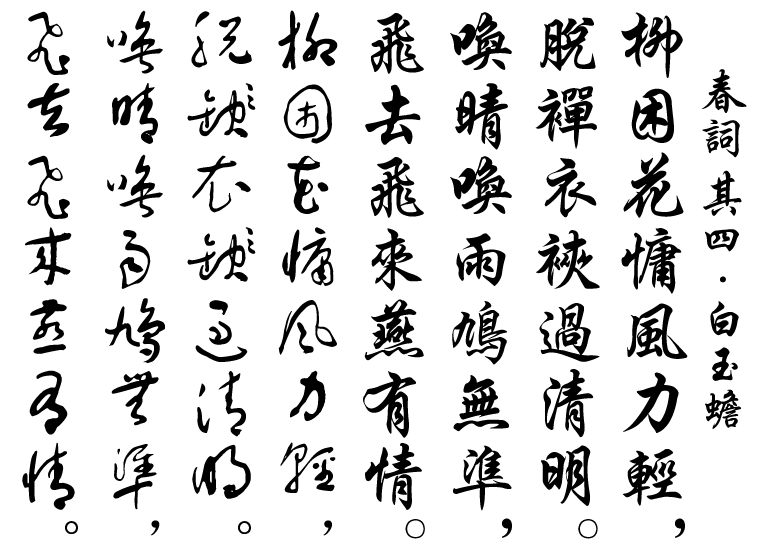 春詞 其四・白玉蟾
柳困花慵風力輕，
脫襌衣裌過清明。
喚晴喚雨鳩無準，
飛去飛來燕有情。
柳困花慵風力輕，
脫衣過清明。
喚晴喚雨鳩無準，
飛去飛來燕有情。